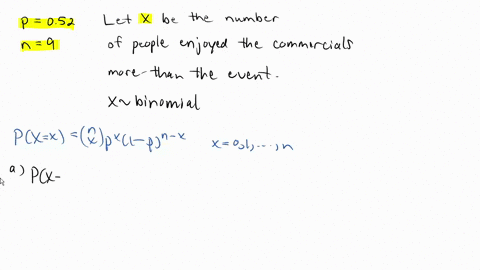 p = 0.52 Let X be the number
n = 9 of people enjoyed the commercials
more than the event.
X~binomial
P(X=x) = (n x) p^x (1-p)^{n-x} x=0,1,...,n
a) P(X=